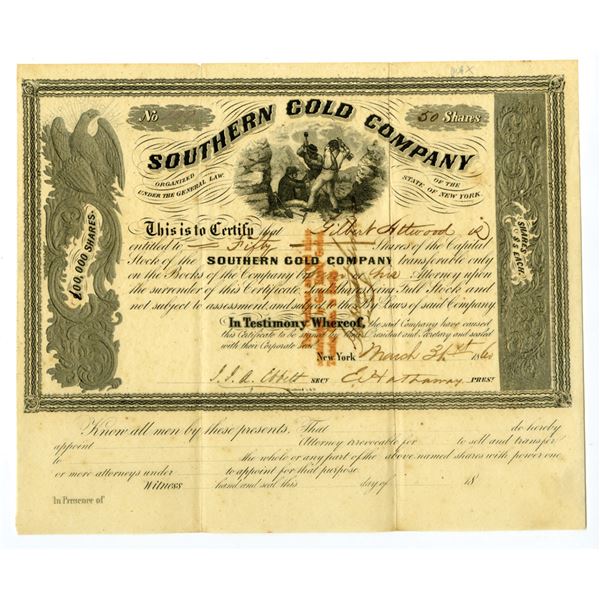 No 50 Shares
SOUTHERN GOLD COMPANY
ORGANIZED UNDER THE GENERAL LAW OF THE STATE OF NEW YORK.
100,000 SHARES.
SHARES $5 EACH.
This is to Certify that Gilbert Attwood is
entitled to Fifty Shares of the Capital
Stock of the SOUTHERN GOLD COMPANY transferable only
on the Books of the Company by Attorney upon
the surrender of this Certificate. Full Stock and
not subject to assessment, and subject to the By Laws of said Company
In Testimony Whereof, the said Company have caused
this Certificate to be signed by their President and Secretary and sealed
with their Corporate Seal
New York March 186
SECY E. Hathaway PREST
Know all men by these presents. That do hereby
appoint Attorney irrevocable for to sell and transfer
to the whole or any part of the above named shares with power one
or more attorneys under to appoint for that purpose.
Witness hand and seal this day of 18
In Presence of